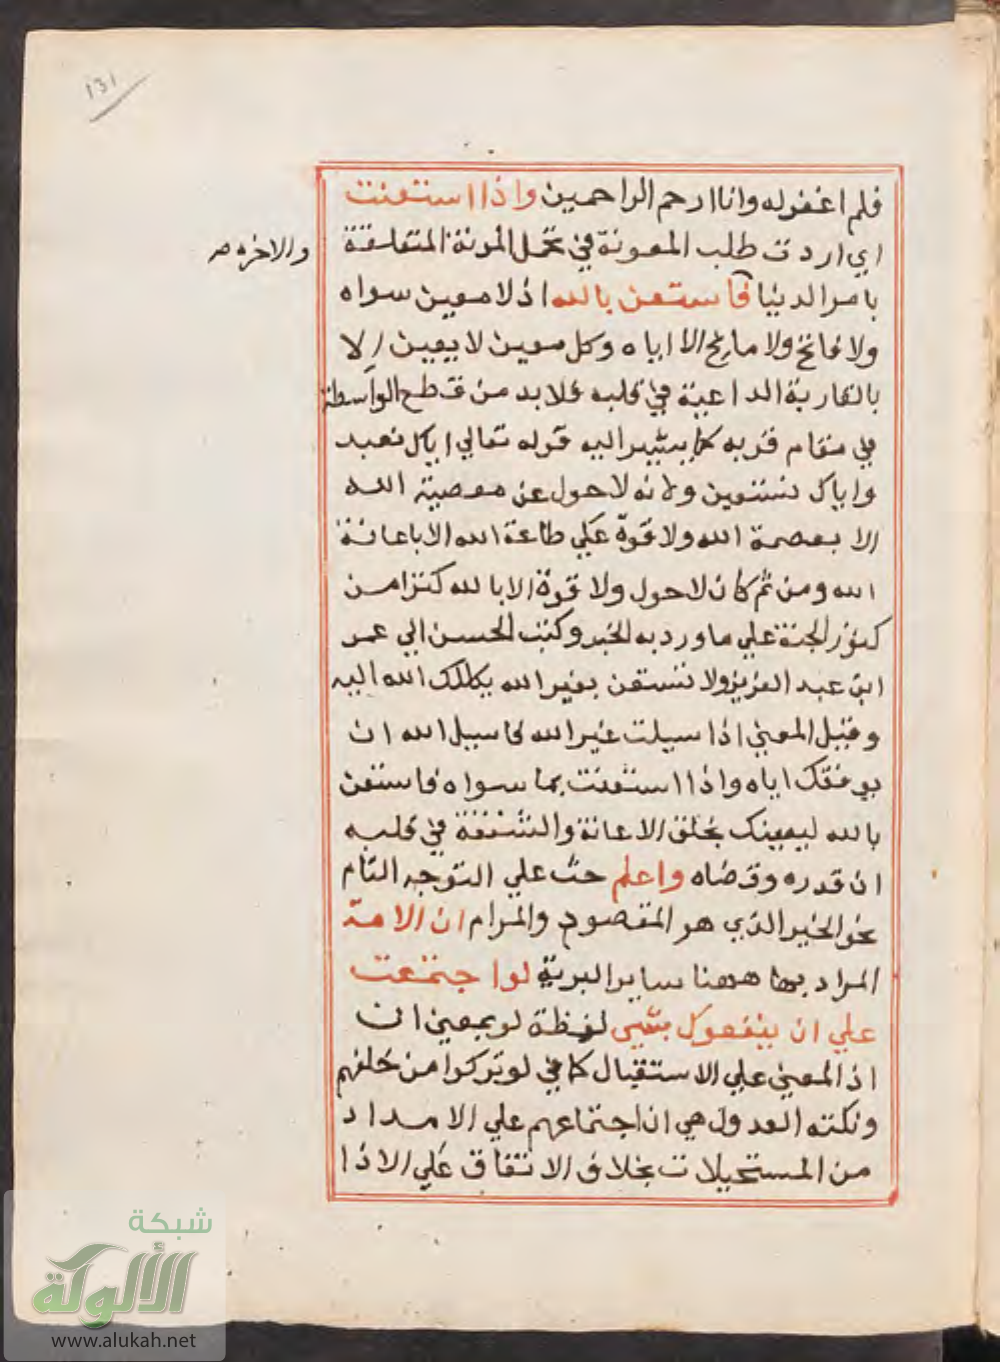 ١٣١
فلم اغفر له وانا ارحم الراحمين واذا استعنت
اي اردت طلب المعونة في تحمل المونة المتعلقة
والاخرة صح
بامر الدنيا فاستعن بالله اذ لا معين سواه
ولا فاتح ولا مانح الا اياه وكل معين لا يعين الا
الداعية في قلبه فلا بد من قطع الواسطة
في مقام قربه كما يشير اليه قوله تعالي اياك نعبد
واياك نستعين ولانه لا حول عن معصية الله
الا بعصمة الله ولا قوة علي طاعة الله الا باعانة
الله ومن ثم كان لا حول ولا قوة الا بالله كنزا من
كنوز الجنة علي ما ورد به الخبر وكتب الحسن الي عمر
ابن عبد العزيز ولا تستعن بغير الله يكلك الله اليه
وقيل المعني اذا سيلت غير الله فاسيل الله ان
يوفقك اياه واذا استعنت بما سواه فاستعن
بالله ليعينك بخلق الاعانة والشفقة في قلبه
ان قدره وقضاه واعلم حث علي التوجه التام
نحو الخير الذي هو المقصود والمرام ان الامة
المراد بها ههنا ساير البرية لو اجتمعت
علي ان ينفعوك بشيي لفظة لو بمعني ان
اذ المعني علي الاستقبال كما في لو تركوا من خلفهم
ونكتة العدول هي ان اجتماعهم علي الامداد
من المستحيلات بخلاف الاتفاق علي الاذا
شبكة
الألوكة
www.alukah.net